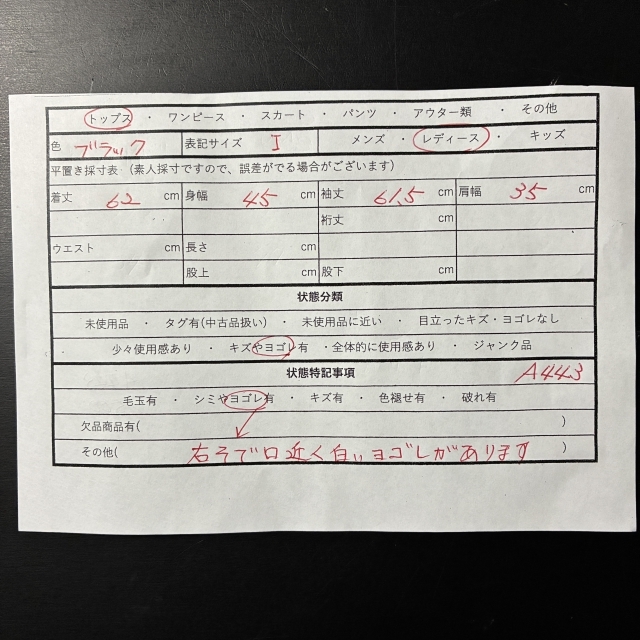 トップス ・ ワンピース ・ スカート ・ パンツ ・ アウター類 ・ その他
色 ブラック 表記サイズ I メンズ ・ レディース ・ キッズ
平置き採寸表 (素人採寸ですので、誤差がでる場合がございます)
着丈 62 cm 身幅 45 cm 袖丈 61.5 cm 肩幅 35 cm
裄丈 cm
ウエスト cm 長さ cm
股上 cm 股下 cm
状態分類
未使用品 ・ タグ有(中古品扱い) ・ 未使用品に近い ・ 目立ったキズ・ヨゴレなし
少々使用感あり ・ キズやヨゴレ有 ・全体的に使用感あり ・ ジャンク品
状態特記事項 A443
毛玉有 ・ シミやヨゴレ有 ・ キズ有 ・ 色褪せ有 ・ 破れ有
欠品商品有( )
その他( 右そで口近く白いヨゴレがあります )